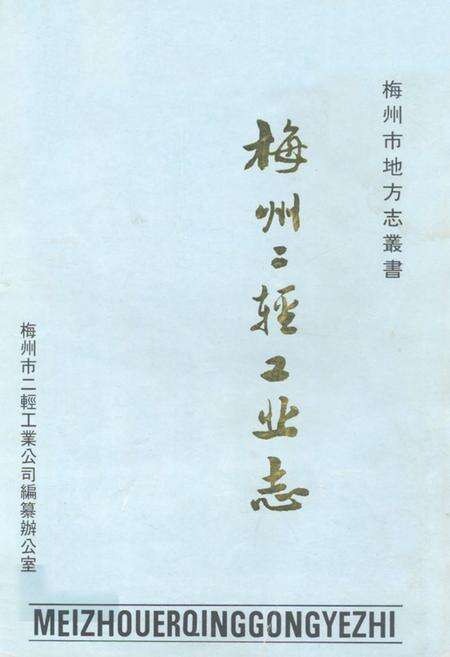 梅州市地方志叢書
梅州二輕工业志
梅州市二輕工業公司編纂辦公室
MEIZHOUERQINGGONGYEZHI